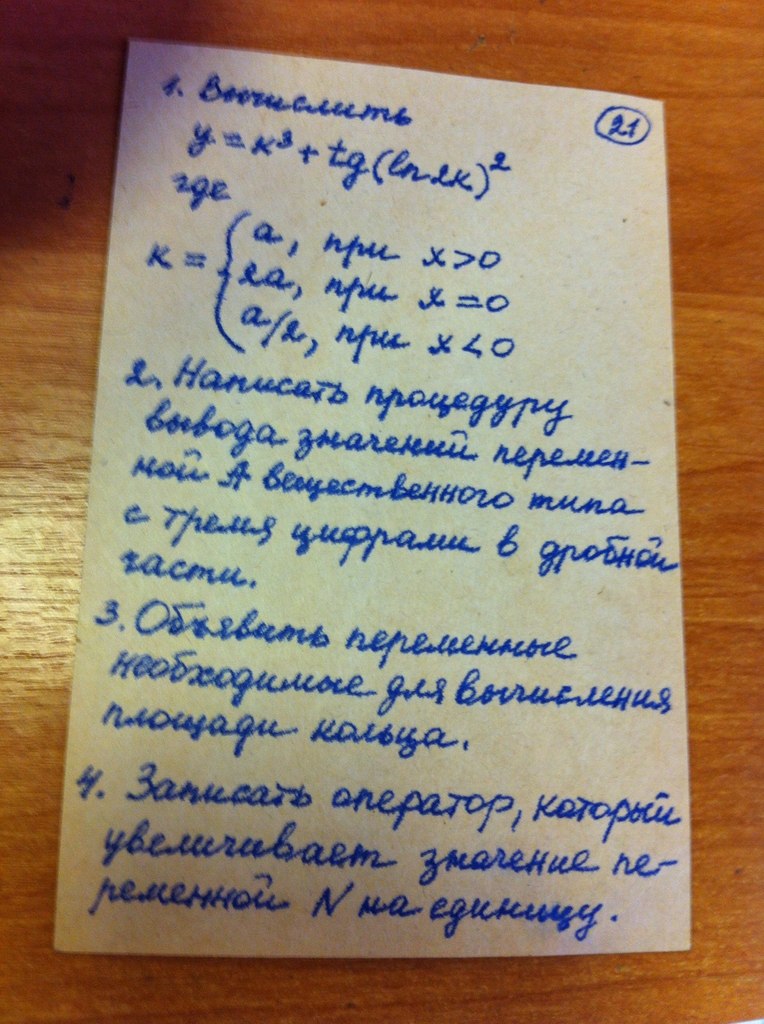 21
1. Вычислить
y = к³ + tg(ln 2к)²
где
к = { a, при x > 0
2a, при x = 0
a/2, при x < 0
2. Написать процедуру
вывода значений перемен-
ной A вещественного типа
с тремя цифрами в дробной
части.
3. Объявить переменные
необходимые для вычисления
площади кольца.
4. Записать оператор, который
увеличивает значение пе-
ременной N на единицу.